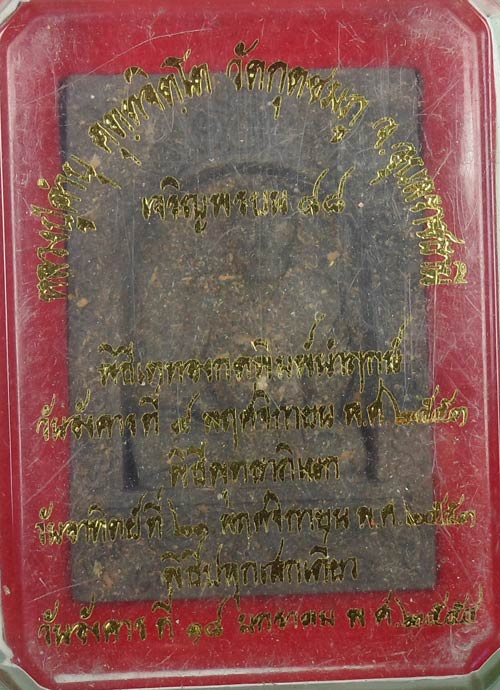 หลวงปู่คำบุ คุตฺตจิตฺโต วัดกุดชมภู จ.อุบลราชธานี
เจริญพรบน ๘๘
พิธีเททองกดพิมพ์นำฤกษ์
วันอังคารที่ ๙ พฤศจิกายน พ.ศ.๒๕๕๓
พิธีพุทธาภิเษก
วันอาทิตย์ที่ ๒๑ พฤศจิกายน พ.ศ.๒๕๕๓
พิธีปลุกเสกเดี่ยว
วันอังคารที่ ๑๘ มกราคม พ.ศ.๒๕๕๔